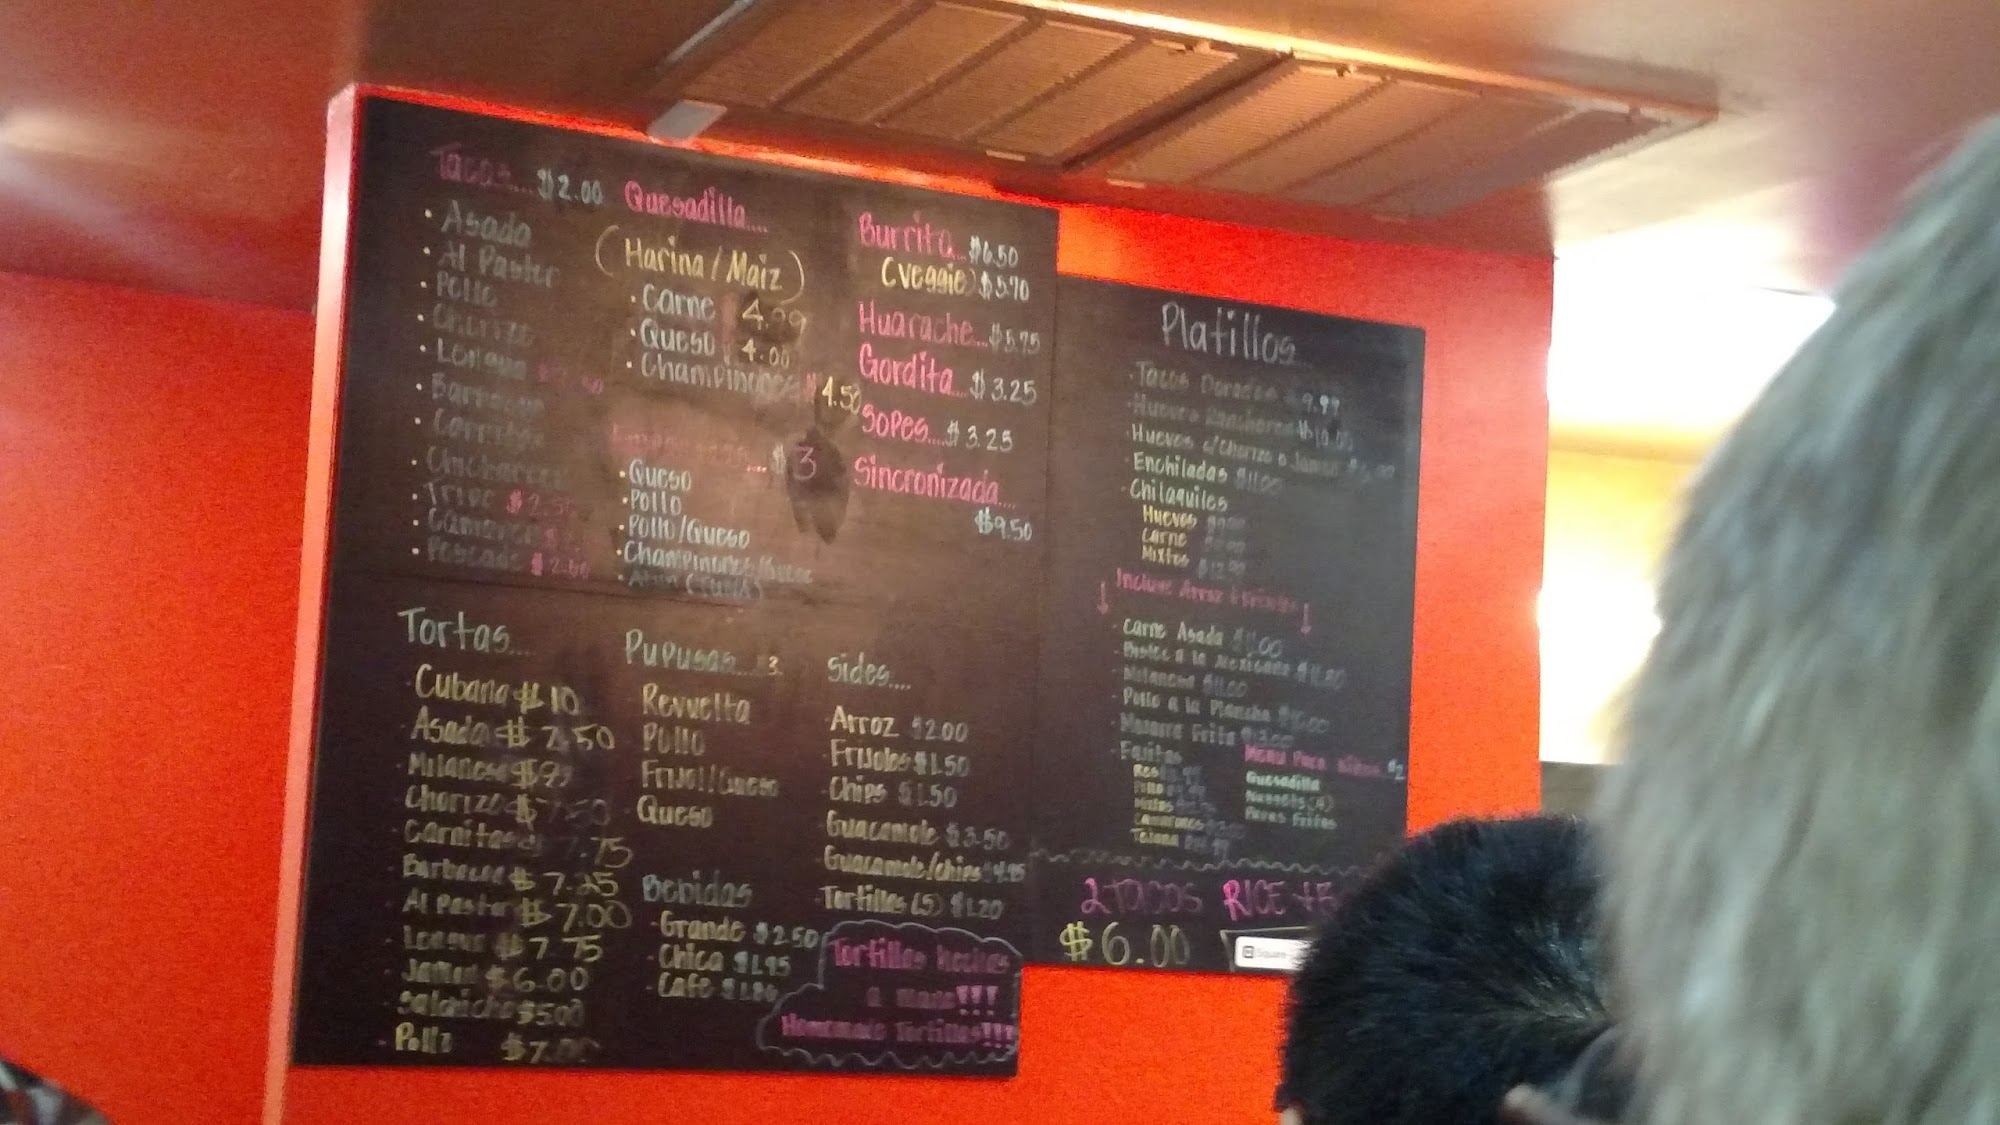 Tacos... $2.00
• Asada
• Al Pastor
• Pollo
• Chorizo
• Lengua
• Tripe $2.50
• Pescado $2.00
Quesadilla....
(Harina / Maiz)
• Carne 4.99
• Queso 4.00
• Champinones 4.50
$3
• Queso
• Pollo
• Pollo/Queso
• Champinones/Queso
• Atun (Tuna)
Burrita... $6.50
(Veggie) $5.70
Huarache... $5.75
Gordita... $3.25
Sopes.... $3.25
Sincronizada....
$9.50
Tortas....
Cubana $10
Asada $7.50
Milanesa
Chorizo $7.50
Carnitas 7.75
$7.25
Al Pastor $7.00
Lengua $7.75
Jamon $6.00
Salchicha $5.00
$7.00
Pupusas.... $3
Revuelta
Pollo
Frijol/Queso
Queso
Bebidas
• Grande $2.50
• Chica $1.95
• Cafe
Sides....
Arroz $2.00
Frijoles $1.50
Chips $1.50
Guacamole $3.50
Guacamole/chips $4.95
Tortillas (5) $1.20
Tortillas hechas
a mano!!!
Homemade Tortillas!!!
Platillos...
• Tacos Dorados 9.99
• Huevos Rancheros $10.00
Huevos c/Chorizo o Jamon
Enchiladas $11.00
• Chilaquiles
Huevos
Carne
Mixtos
Incluye Arroz + Frijoles
Carne Asada $11.00
Bistec a la Mexicana
Milanesa $11.00
Pollo a la Plancha
Mojarra Frita
Fajitas
Res
Pollo
Mixtas
Camarones
Tejana
Menu Para Niños $2
Quesadilla
Nuggets (4)
Papas Fritas
2 TACOS RICE +
$6.00
Square